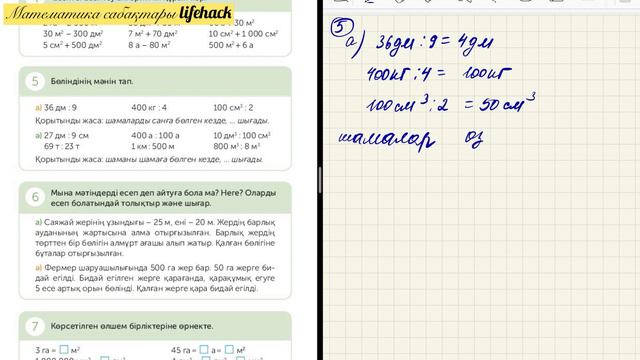 Математика сабақтары lifehack
30 м² – 300 дм² 7 м² + 70 дм² 10 см² + 1 000 см²
5 см² + 500 дм² 8 а – 80 м² 500 м² + 6 а
5 Бөліндінің мәнін тап.
а) 36 дм : 9 400 кг : 4 100 см³ : 2
Қорытынды жаса: шамаларды санға бөлген кезде, ... шығады.
ә) 27 дм : 9 см 400 а : 100 а 10 дм³ : 100 см³
69 т : 23 т 1 км : 500 м 800 м³ : 8 м³
Қорытынды жаса: шаманы шамаға бөлген кезде, ... шығады.
6 Мына мәтіндерді есеп деп айтуға бола ма? Неге? Оларды
есеп болатындай толықтыр және шығар.
а) Саяжай жерінің ұзындығы – 25 м, ені – 20 м. Жердің барлық
ауданының жартысына алма отырғызылған. Барлық жердің
төрттен бір бөлігін алмұрт ағашы алып жатыр. Қалған бөлігіне
бұталар отырғызылған.
ә) Фермер шаруашылығында 500 га жер бар. 50 га жерге би-
дай егілді. Бидай егілген жерге қарағанда, қарақұмық егуге
5 есе артық орын бөлінді. Қалған жерге қара бидай егілді.
7 Көрсетілген өлшем бірліктеріне өрнекте.
3 га = м² 45 га = а = м²
5
а) 36дм : 9 = 4дм
400кг : 4 = 100кг
100см³ : 2 = 50см³
шамалар өз